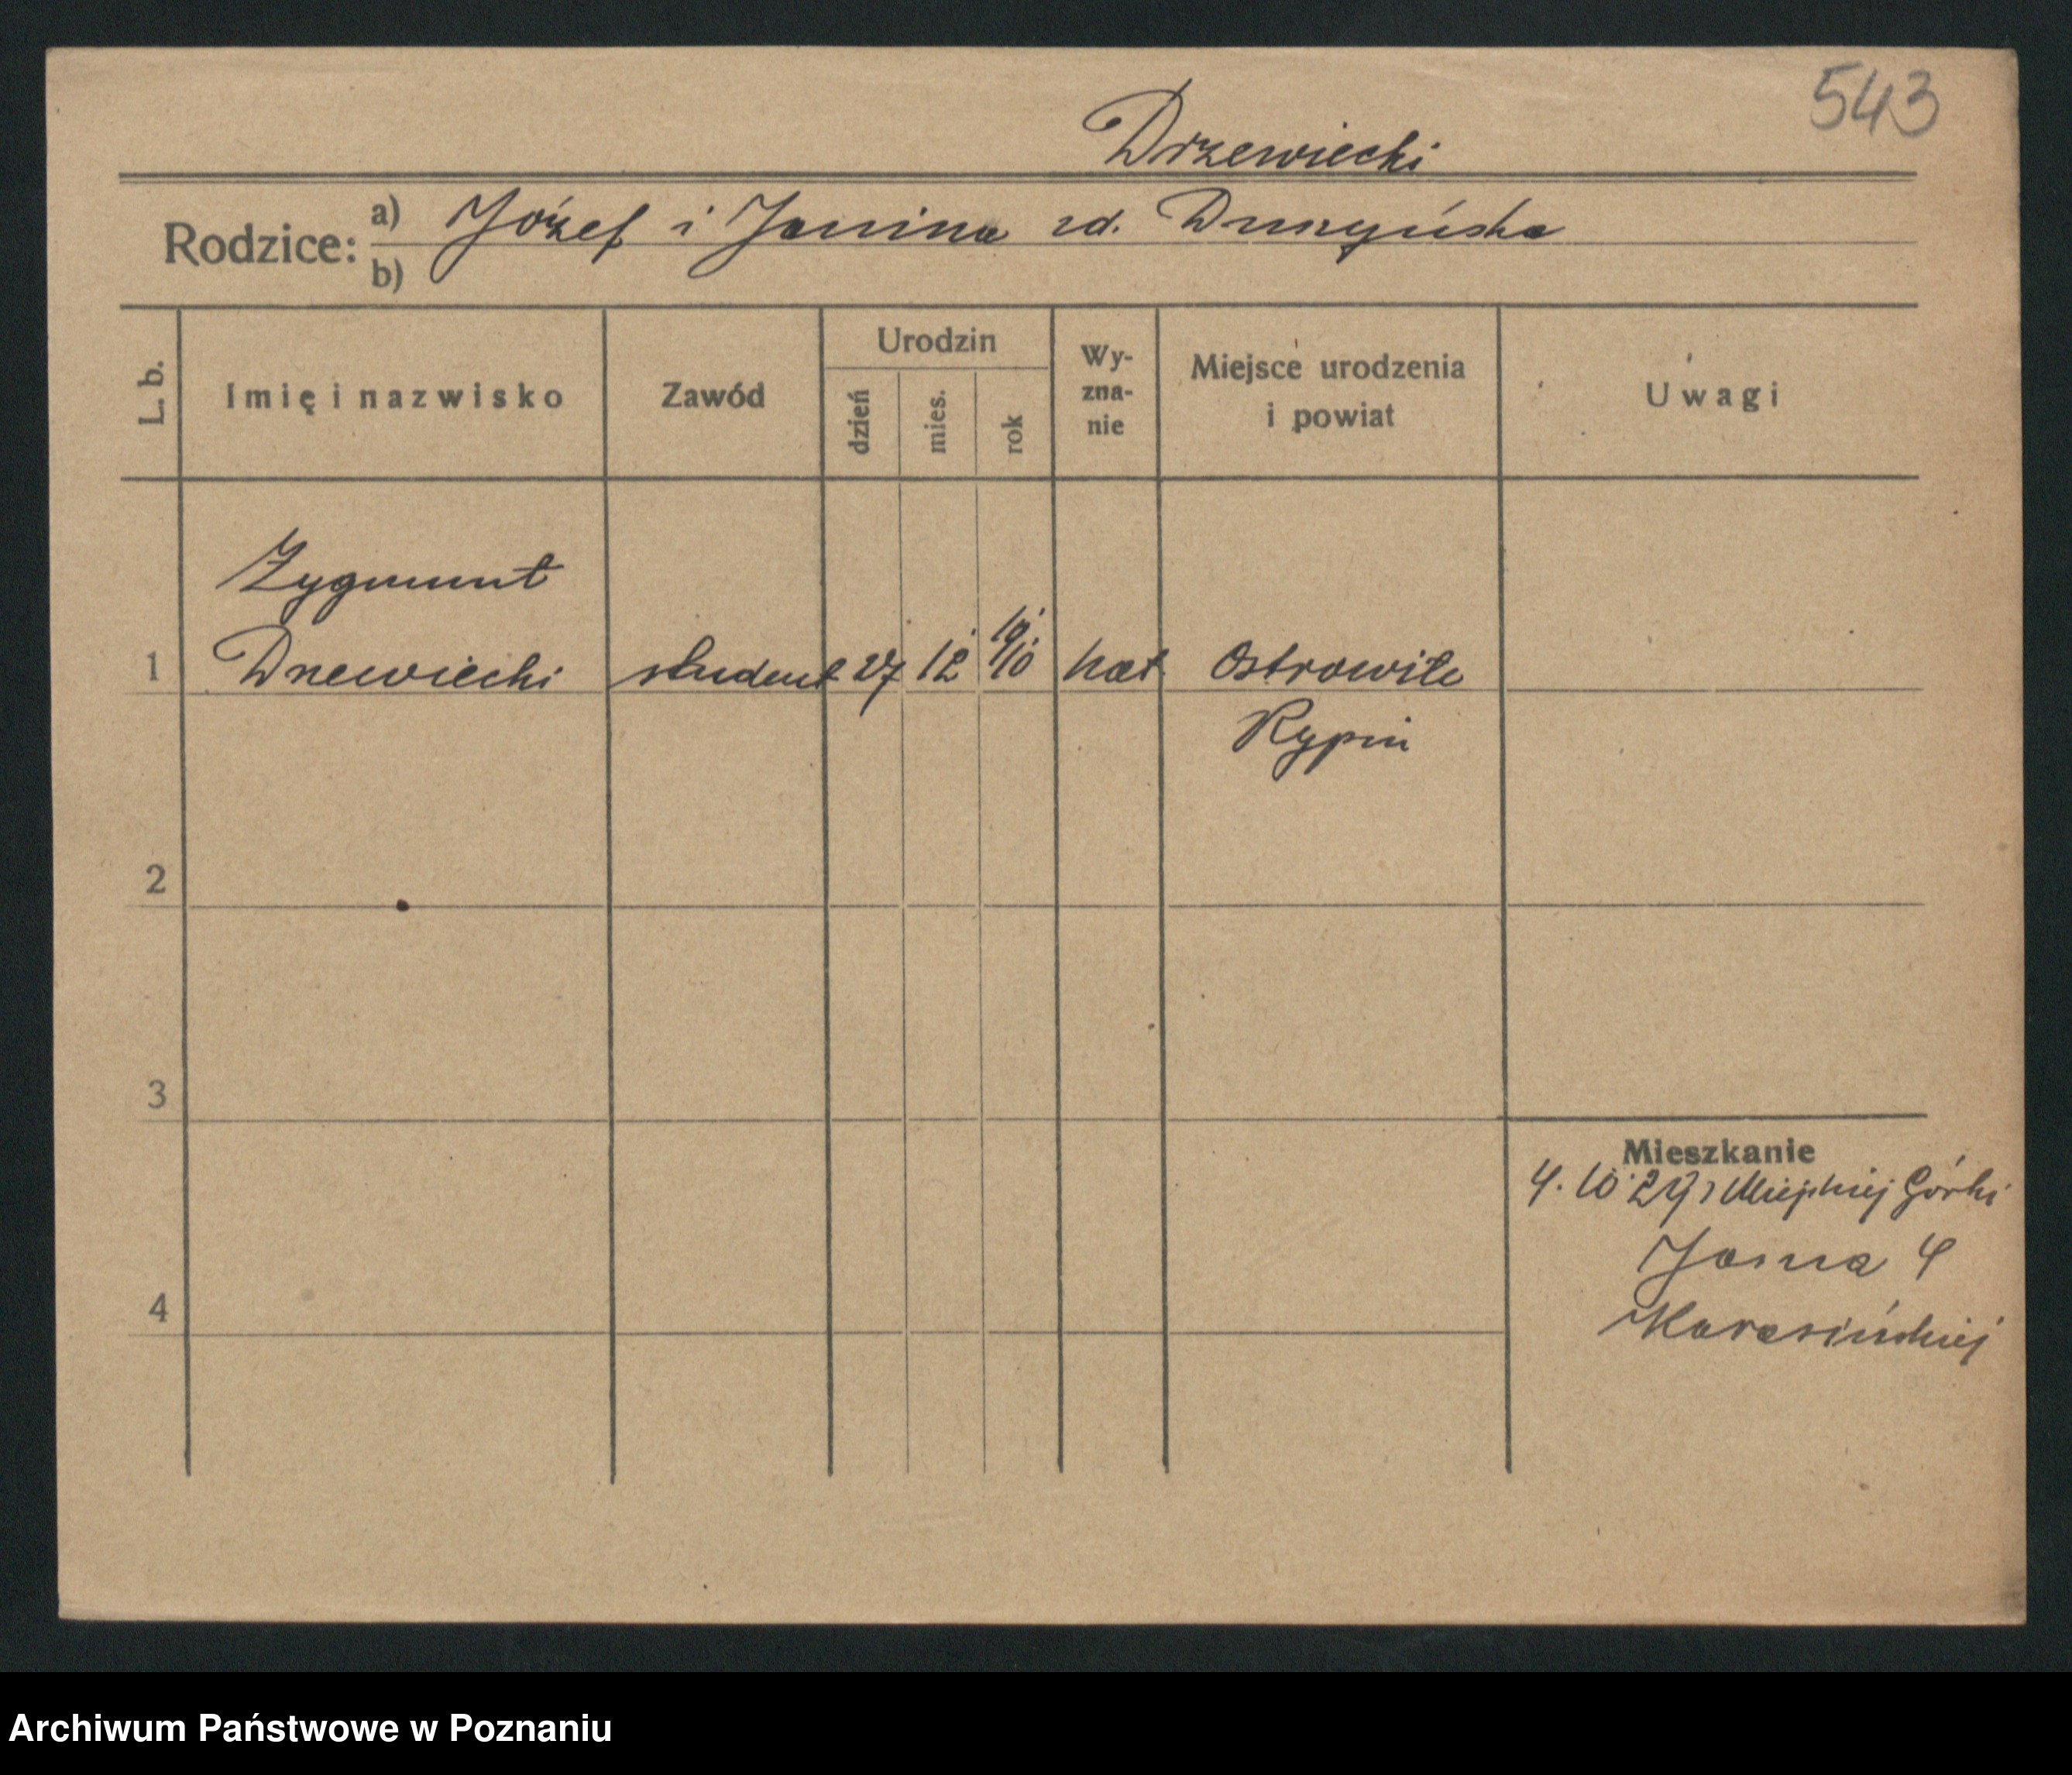 543
Drzewiecki
Rodzice: a) Józef i Janina zd.
b)
L. b.
Imię i nazwisko
Zawód
Urodzin
dzień
mies.
rok
Wy-
zna-
nie
Miejsce urodzenia
i powiat
Uwagi
Zygmunt
1 Drzewiecki student 27 12 1910 kat. Ostrowite
Rypin
2
3
Mieszkanie
4. 10. 29 z Miejskiej Górki
Jasna 4
4
Archiwum Państwowe w Poznaniu